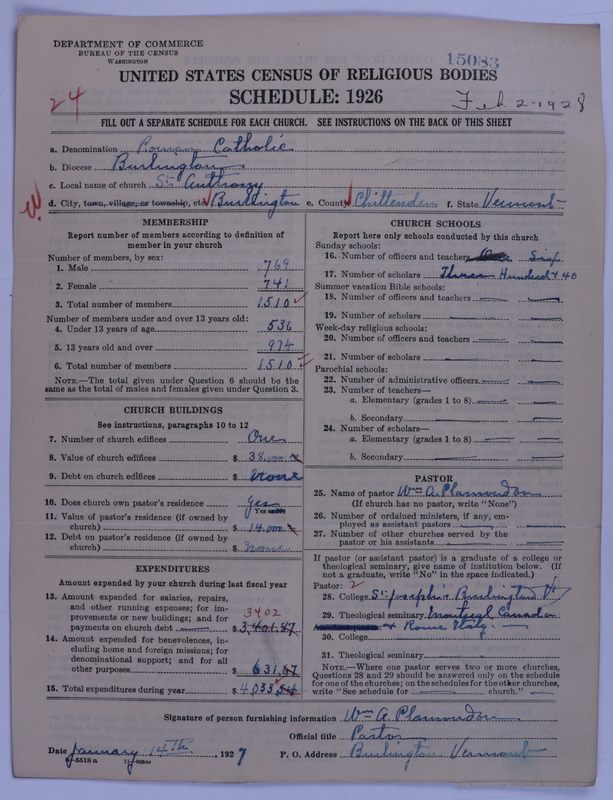 DEPARTMENT OF COMMERCE
BUREAU OF THE CENSUS
WASHINGTON
15083
UNITED STATES CENSUS OF RELIGIOUS BODIES
SCHEDULE: 1926
24
Feb. 2-1928
FILL OUT A SEPARATE SCHEDULE FOR EACH CHURCH. SEE INSTRUCTIONS ON THE BACK OF THIS SHEET
a. Denomination Roman Catholic
b. Diocese Burlington
c. Local name of church St. Anthony
d. City, town, village, or township, etc. Burlington e. County Chittenden f. State Vermont
MEMBERSHIP
Report number of members according to definition of
member in your church
Number of members, by sex:
1. Male 769
2. Female 741
3. Total number of members 1510
Number of members under and over 13 years old:
4. Under 13 years of age 536
5. 13 years old and over 974
6. Total number of members 1510
NOTE.—The total given under Question 6 should be the
same as the total of males and females given under Question 3.
CHURCH BUILDINGS
See instructions, paragraphs 10 to 12
7. Number of church edifices One
8. Value of church edifices $ 38,000
9. Debt on church edifices $ None
10. Does church own pastor's residence Yes
Yes or No
11. Value of pastor's residence (if owned by
church) $ 14.000
12. Debt on pastor's residence (if owned by
church) $ None
EXPENDITURES
Amount expended by your church during last fiscal year
13. Amount expended for salaries, repairs,
and other running expenses; for im-
provements or new buildings; and for
payments on church debt $ 3,401.87
3402
14. Amount expended for benevolences, in-
cluding home and foreign missions; for
denominational support; and for all
other purposes $ 631.67
15. Total expenditures during year $ 4033.54
CHURCH SCHOOLS
Report here only schools conducted by this church
Sunday schools:
16. Number of officers and teachers Six
17. Number of scholars Three Hundred & 40
Summer vacation Bible schools:
18. Number of officers and teachers
19. Number of scholars
Week-day religious schools:
20. Number of officers and teachers
21. Number of scholars
Parochial schools:
22. Number of administrative officers
23. Number of teachers—
a. Elementary (grades 1 to 8)
b. Secondary
24. Number of scholars—
a. Elementary (grades 1 to 8)
b. Secondary
PASTOR
25. Name of pastor Wm A. Plamondon
(If church has no pastor, write "None")
26. Number of ordained ministers, if any, em-
ployed as assistant pastors
27. Number of other churches served by the
pastor or his assistants
If pastor (or assistant pastor) is a graduate of a college or
theological seminary, give name of institution below. (If
not a graduate, write "No" in the space indicated.)
Pastor: 2
28. College St. Joseph's Burlington Vt
29. Theological seminary Montreal Canada
& Rome Italy
30. College
31. Theological seminary
NOTE.—Where one pastor serves two or more churches,
Questions 28 and 29 should be answered only on the schedule
for one of the churches; on the schedules for the other churches,
write "See schedule for church."
Signature of person furnishing information Wm A. Plamondon
Official title Pastor
Date January 14th, 1927 P. O. Address Burlington Vermont